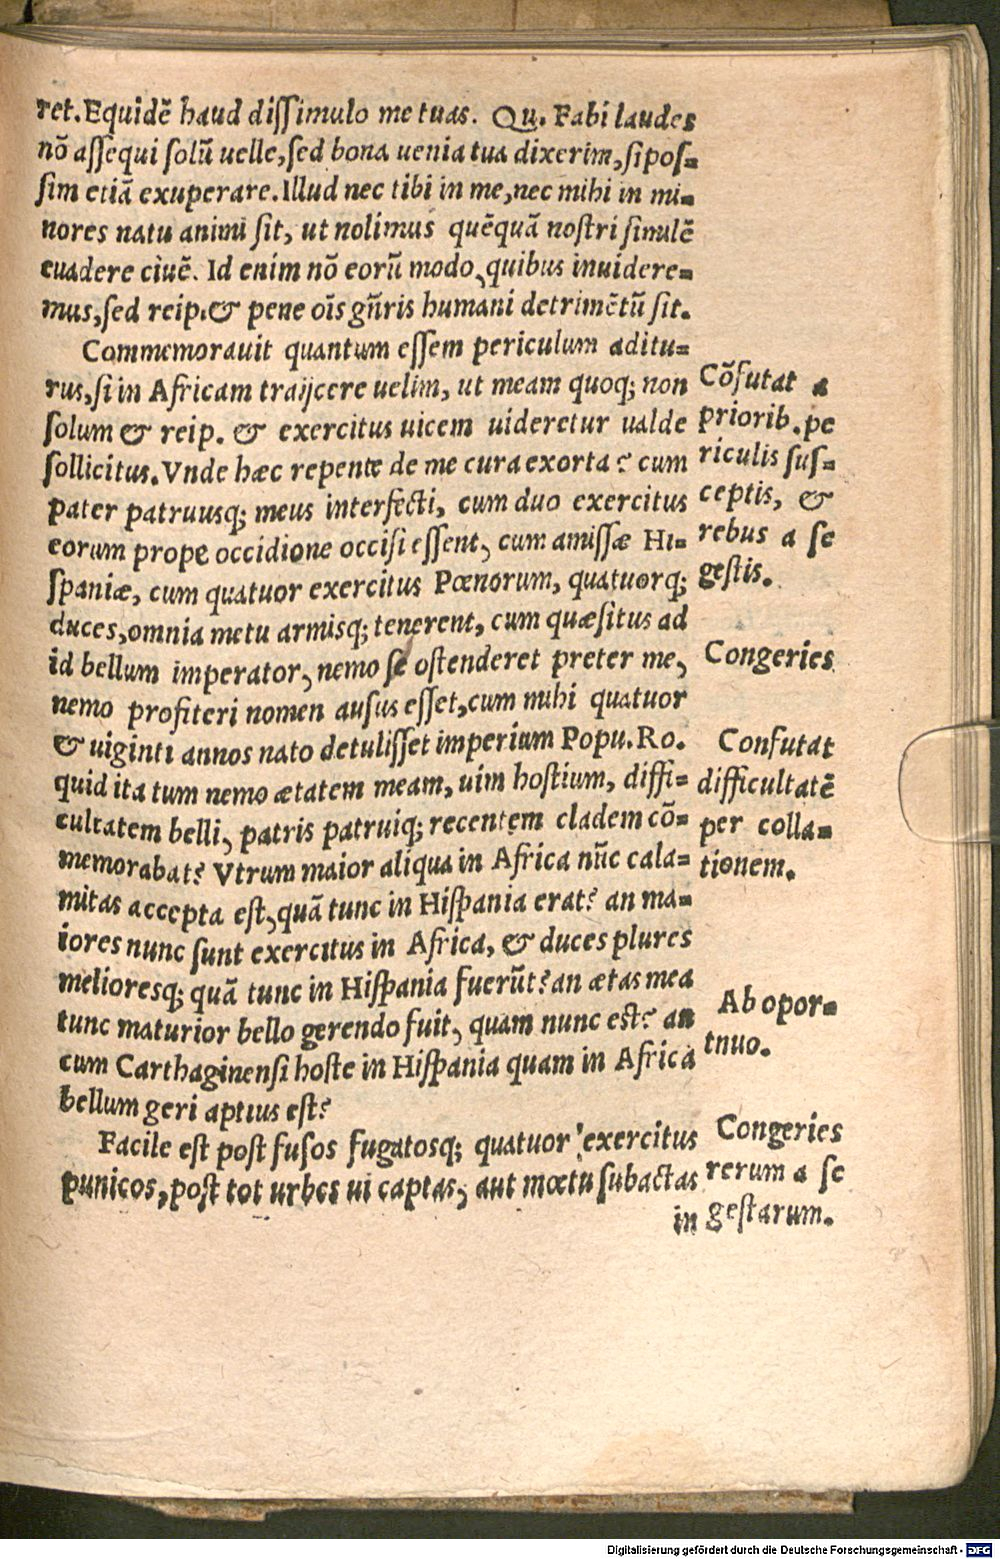 ret. Equidē haud dissimulo me tuas. Qu. Fabi laudes
nō assequi solū uelle, sed bona uenia tua dixerim, si pos=
sim etiā exuperare. Illud nec tibi in me, nec mihi in mi=
nores natu animi sit, ut nolimus quēquā nostri similē
euadere ciuē. Id enim nō eorū modo, quibus inuidere=
mus, sed reip. & pene oīs gn̄ris humani detrimētū sit.
Commemorauit quantum essem periculum aditu=
rus, si in Africam traijcere uelim, ut meam quoq; non
solum & reip. & exercitus uicem uideretur ualde
sollicitus. Vnde hæc repente de me cura exorta? cum
pater patruusq; meus interfecti, cum duo exercitus
eorum prope occidione occisi essent, cum amissæ Hi=
spaniæ, cum quatuor exercitus Pœnorum, quatuorq;
duces, omnia metu armisq; tenerent, cum quæsitus ad
id bellum imperator, nemo se ostenderet preter me,
nemo profiteri nomen ausus esset, cum mihi quatuor
& uiginti annos nato detulisset imperium Popu. Ro.
quid ita tum nemo ætatem meam, uim hostium, diffi=
cultatem belli, patris patruiq; recentem cladem cō=
memorabat? Vtrum maior aliqua in Africa nūc cala=
mitas accepta est, quā tunc in Hispania erat? an ma=
iores nunc sunt exercitus in Africa, & duces plures
melioresq; quā tunc in Hispania fuerūt? an ætas mea
tunc maturior bello gerendo fuit, quam nunc est? an
cum Carthaginensi hoste in Hispania quam in Africa
bellum geri aptius est?
Facile est post fusos fugatosq; quatuor exercitus
punicos, post tot urbes ui captas, aut mœtu subactas
in
Cōfutat a
priorib. pe
riculis sus=
ceptis, &
rebus a se
gestis.
Congeries
Confutat
difficultatē
per colla=
tionem.
Ab opor=
tnuo.
Congeries
rerum a se
gestarum.
Digitalisierung gefördert durch die Deutsche Forschungsgemeinschaft - DFG